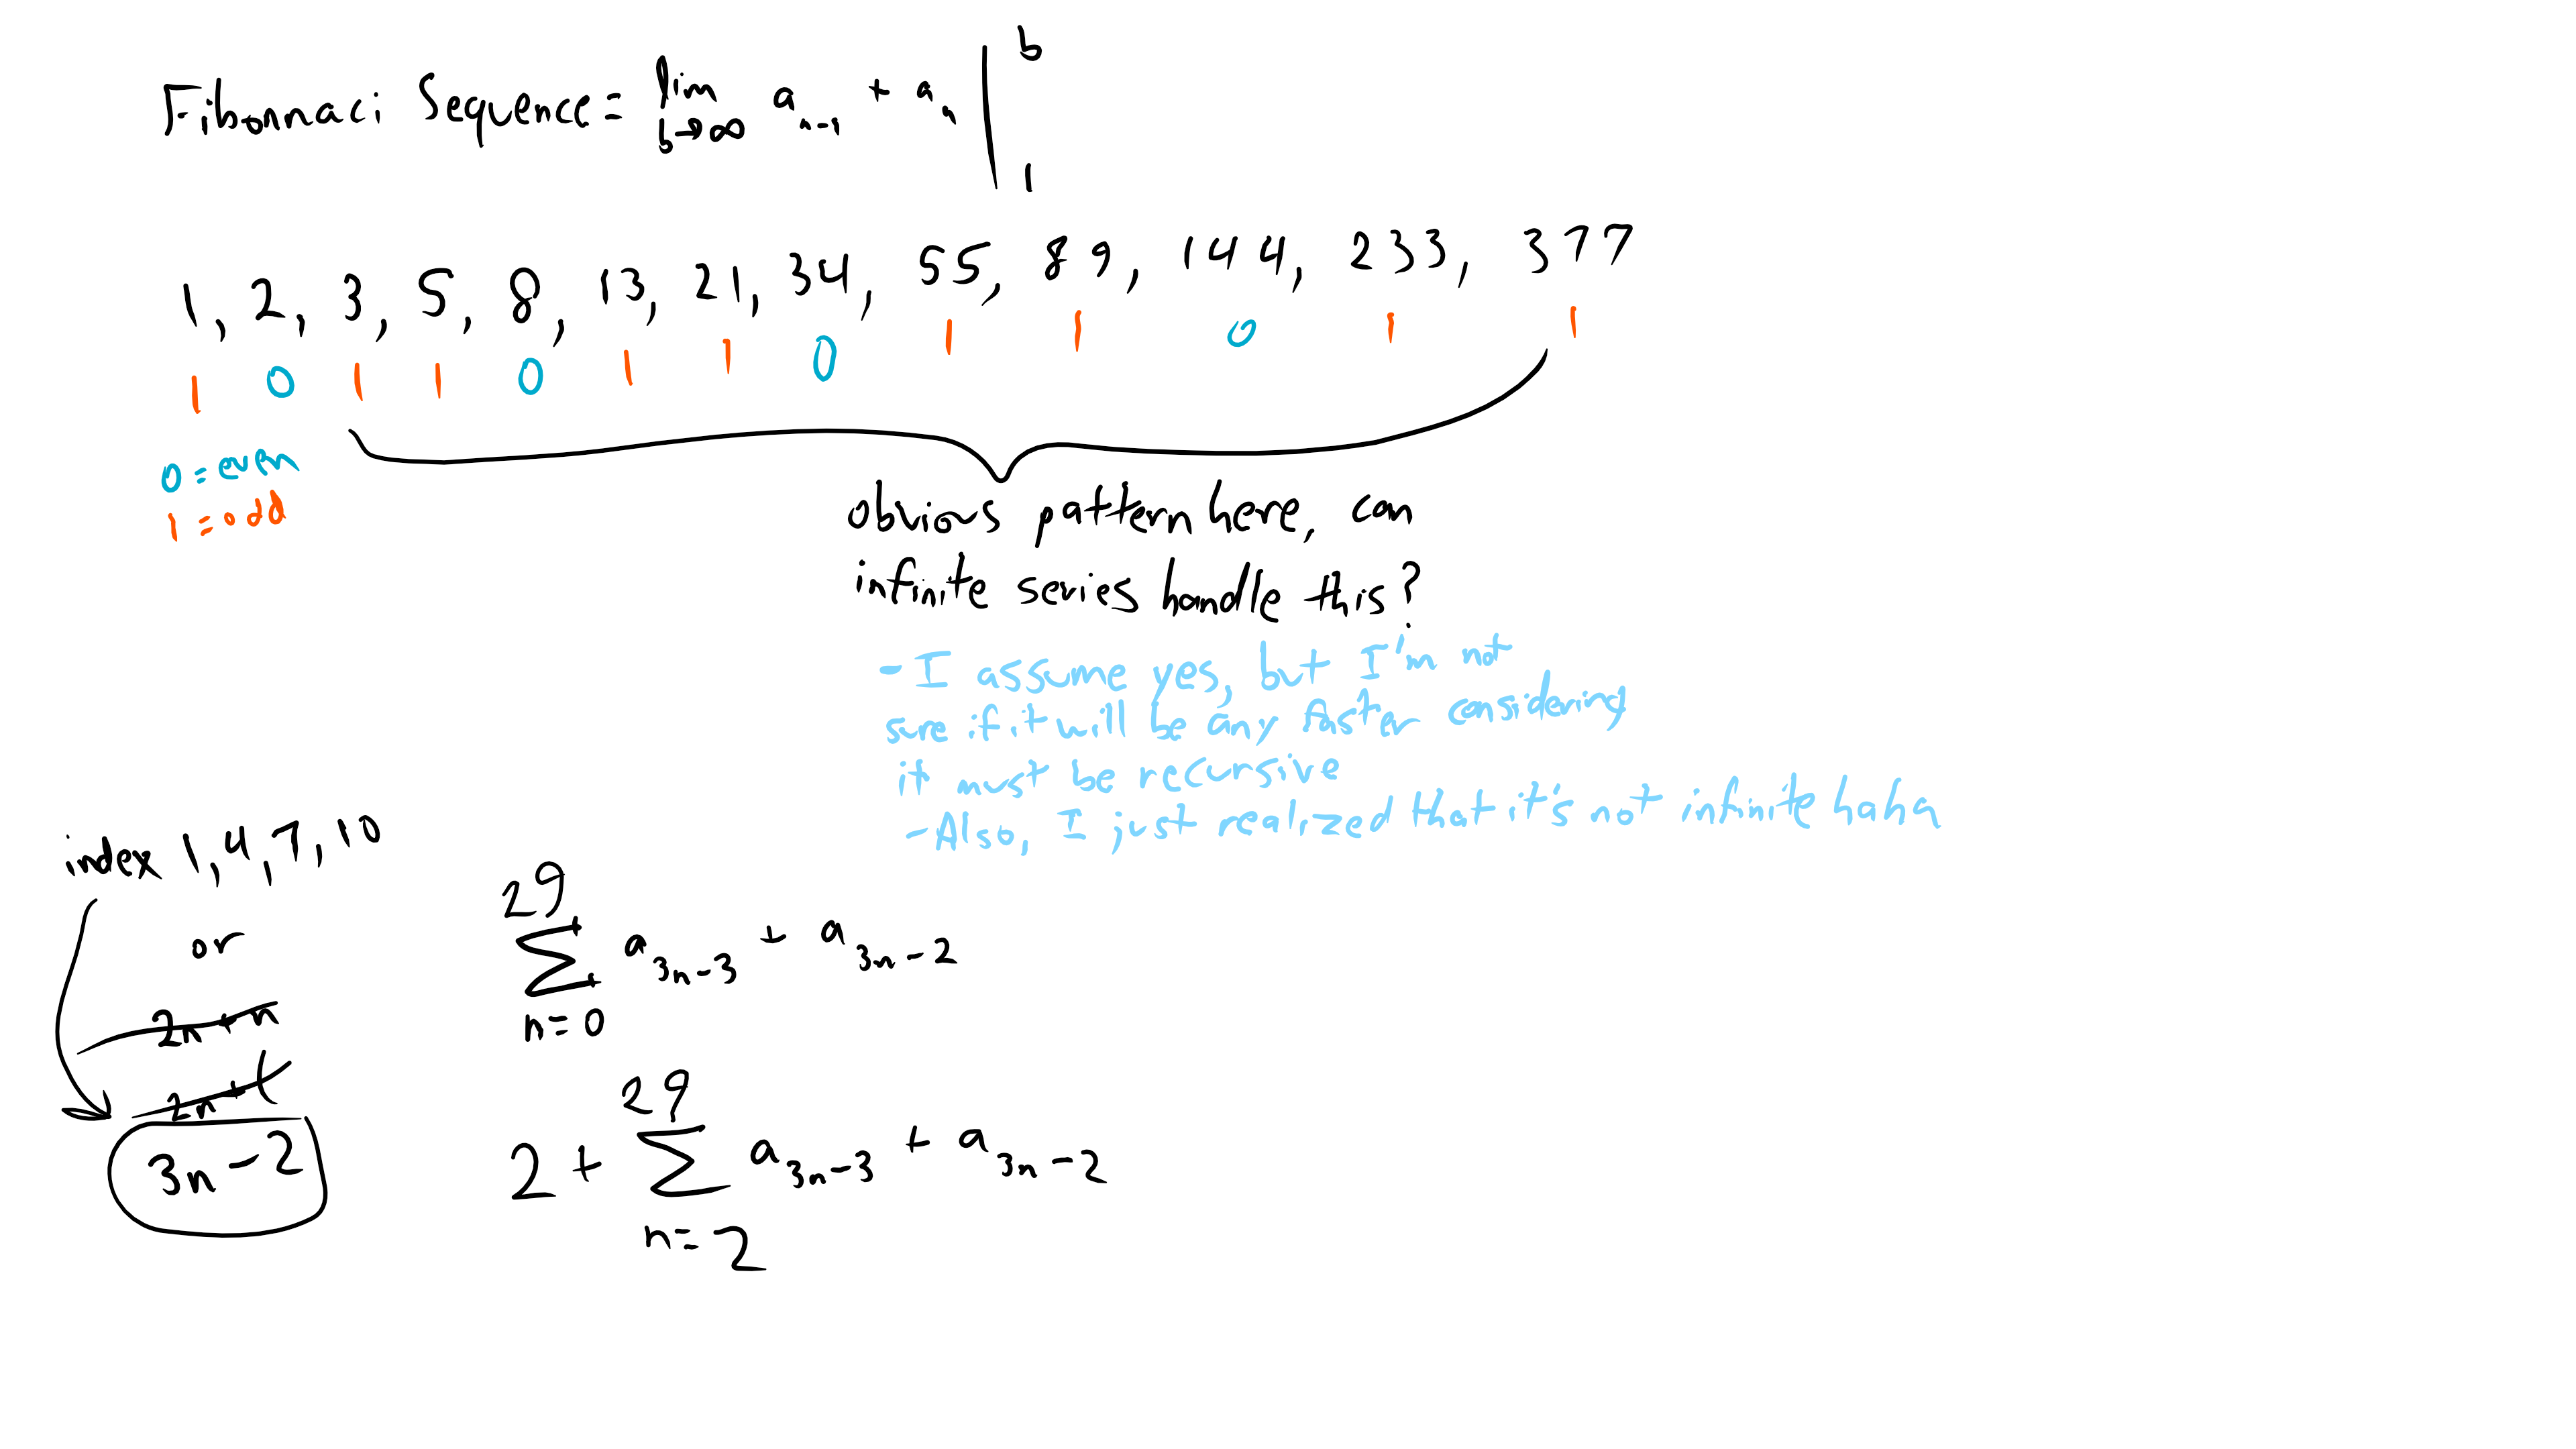 Fibonnaci Sequence = lim b→∞ a_{n-1} + a_n | b 1
1, 2, 3, 5, 8, 13, 21, 34, 55, 89, 144, 233, 377
1 0 1 1 0 1 1 0 1 1 0 1 1
0 = even
1 = odd
obvious pattern here, can
infinite series handle this?
- I assume yes, but I'm not
sure if it will be any faster considering
it must be recursive
- Also, I just realized that it's not infinite haha
index 1, 4, 7, 10
or
2n + n
2n + 1
3n - 2
29
∑ a_{3n-3} + a_{3n-2}
n = 0
29
2 + ∑ a_{3n-3} + a_{3n-2}
n = 2